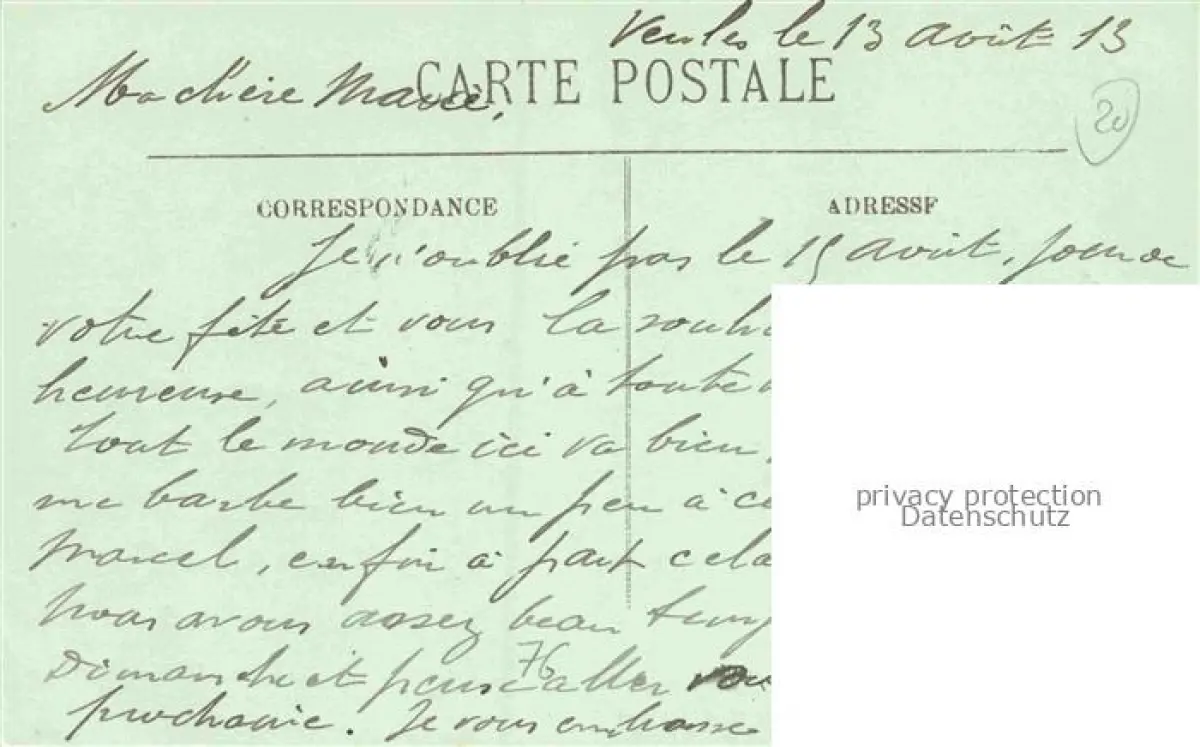 Veules le 13 août 13
Ma chère Marie,
CARTE POSTALE
20
CORRESPONDANCE
ADRESSE
Je n'oublie pas le 15 août, jour de
votre fête et vous la souh
heureuse, ainsi qu'à toute
tout le monde ici va bien,
me barbe bien un peu à c
Marcel, enfin à part cela
nous avons assez beau temp
76
Dimanche et pense aller vou
prochaine. Je vous embrasse
privacy protection
Datenschutz